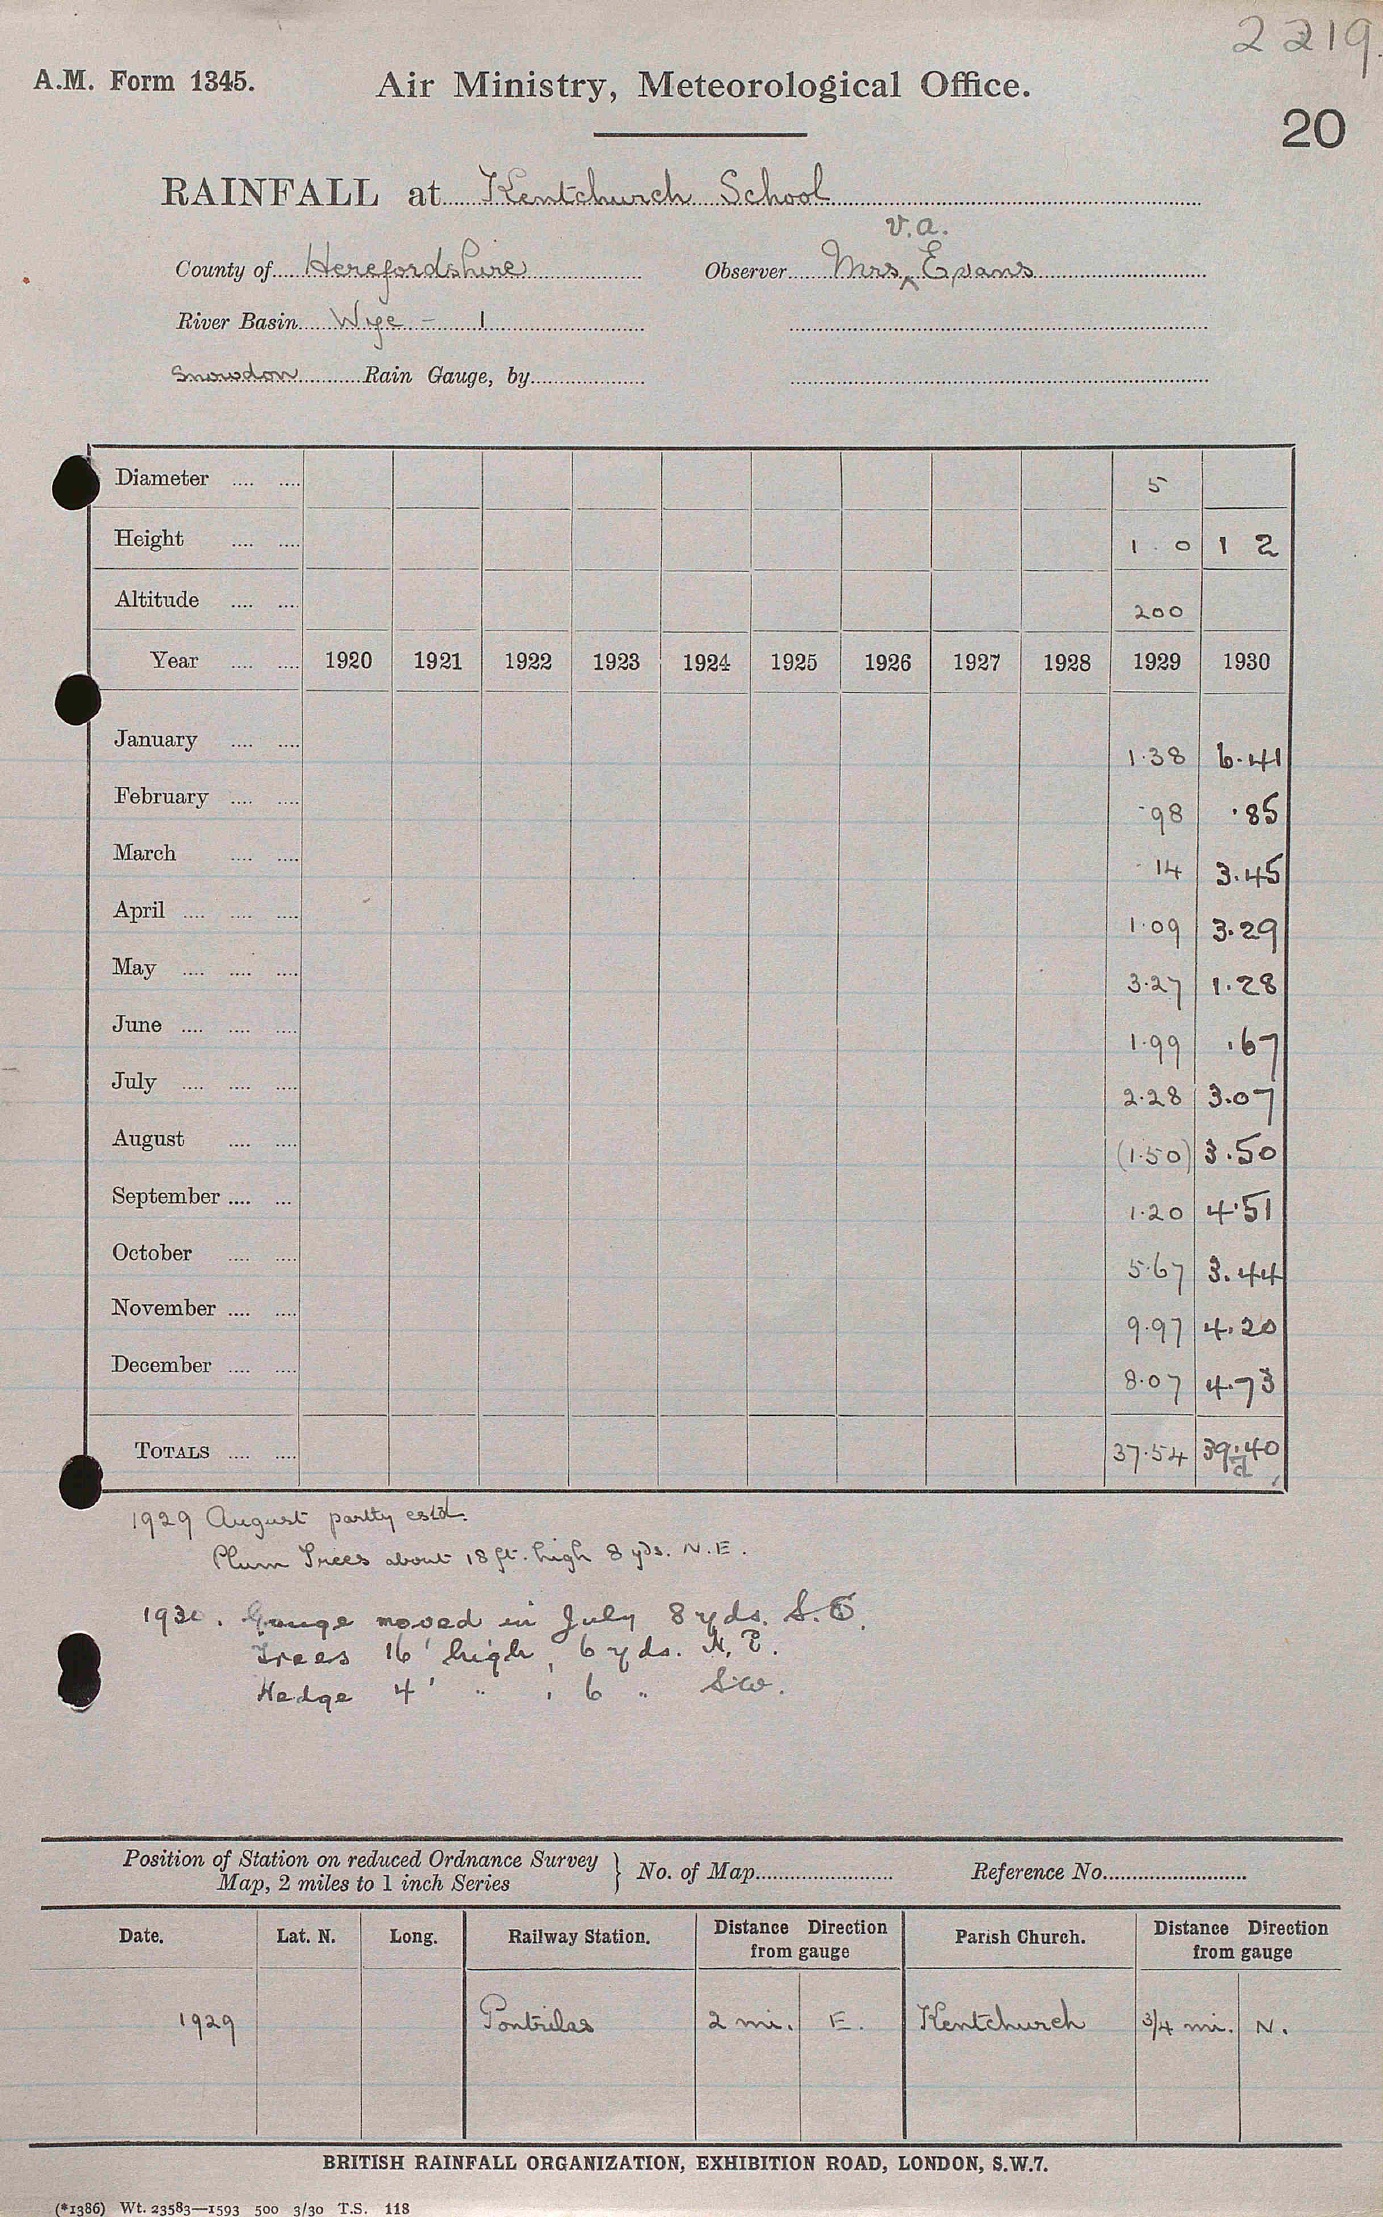 2219.
A.M. Form 1345. Air Ministry, Meteorological Office.
20
RAINFALL at Kentchurch School
V.A.
County of Herefordshire Observer Mrs ^ Evans
River Basin Wye - 1
Snowdon Rain Gauge, by
Diameter .... .... 5
Height .... .... 1 0 1 2
Altitude .... .... 200
Year .... .... 1920 1921 1922 1923 1924 1925 1926 1927 1928 1929 1930
January .... .... 1.38 6.41
February .... .... .98 .85
March .... .... .14 3.45
April .... .... .... 1.09 3.29
May .... .... .... 3.27 1.28
June .... .... .... 1.99 .67
July .... .... .... 2.28 3.07
August .... .... (1.50) 3.50
September .... ... 1.20 4.51
October .... .... 5.67 3.44
November .... .... 9.97 4.20
December .... .... 8.07 4.73
TOTALS .... .... 37.54 39.40
1929 August partly estd.
Plum Trees about 18 ft. high 8 yds. N.E.
1930. Gauge moved in July 8 yds. S.E.
Trees 16' high, 6 yds. N.E.
Hedge 4' " , 6 " SW.
Position of Station on reduced Ordnance Survey
Map, 2 miles to 1 inch Series } No. of Map Reference No.
Date. Lat. N. Long. Railway Station. Distance Direction from gauge Parish Church. Distance Direction from gauge
1929 Pontrilas 2 mi. E. Kentchurch 3/4 mi. N.
BRITISH RAINFALL ORGANIZATION, EXHIBITION ROAD, LONDON, S.W.7.
(*1386) Wt. 23583—1593 500 3/30 T.S. 118